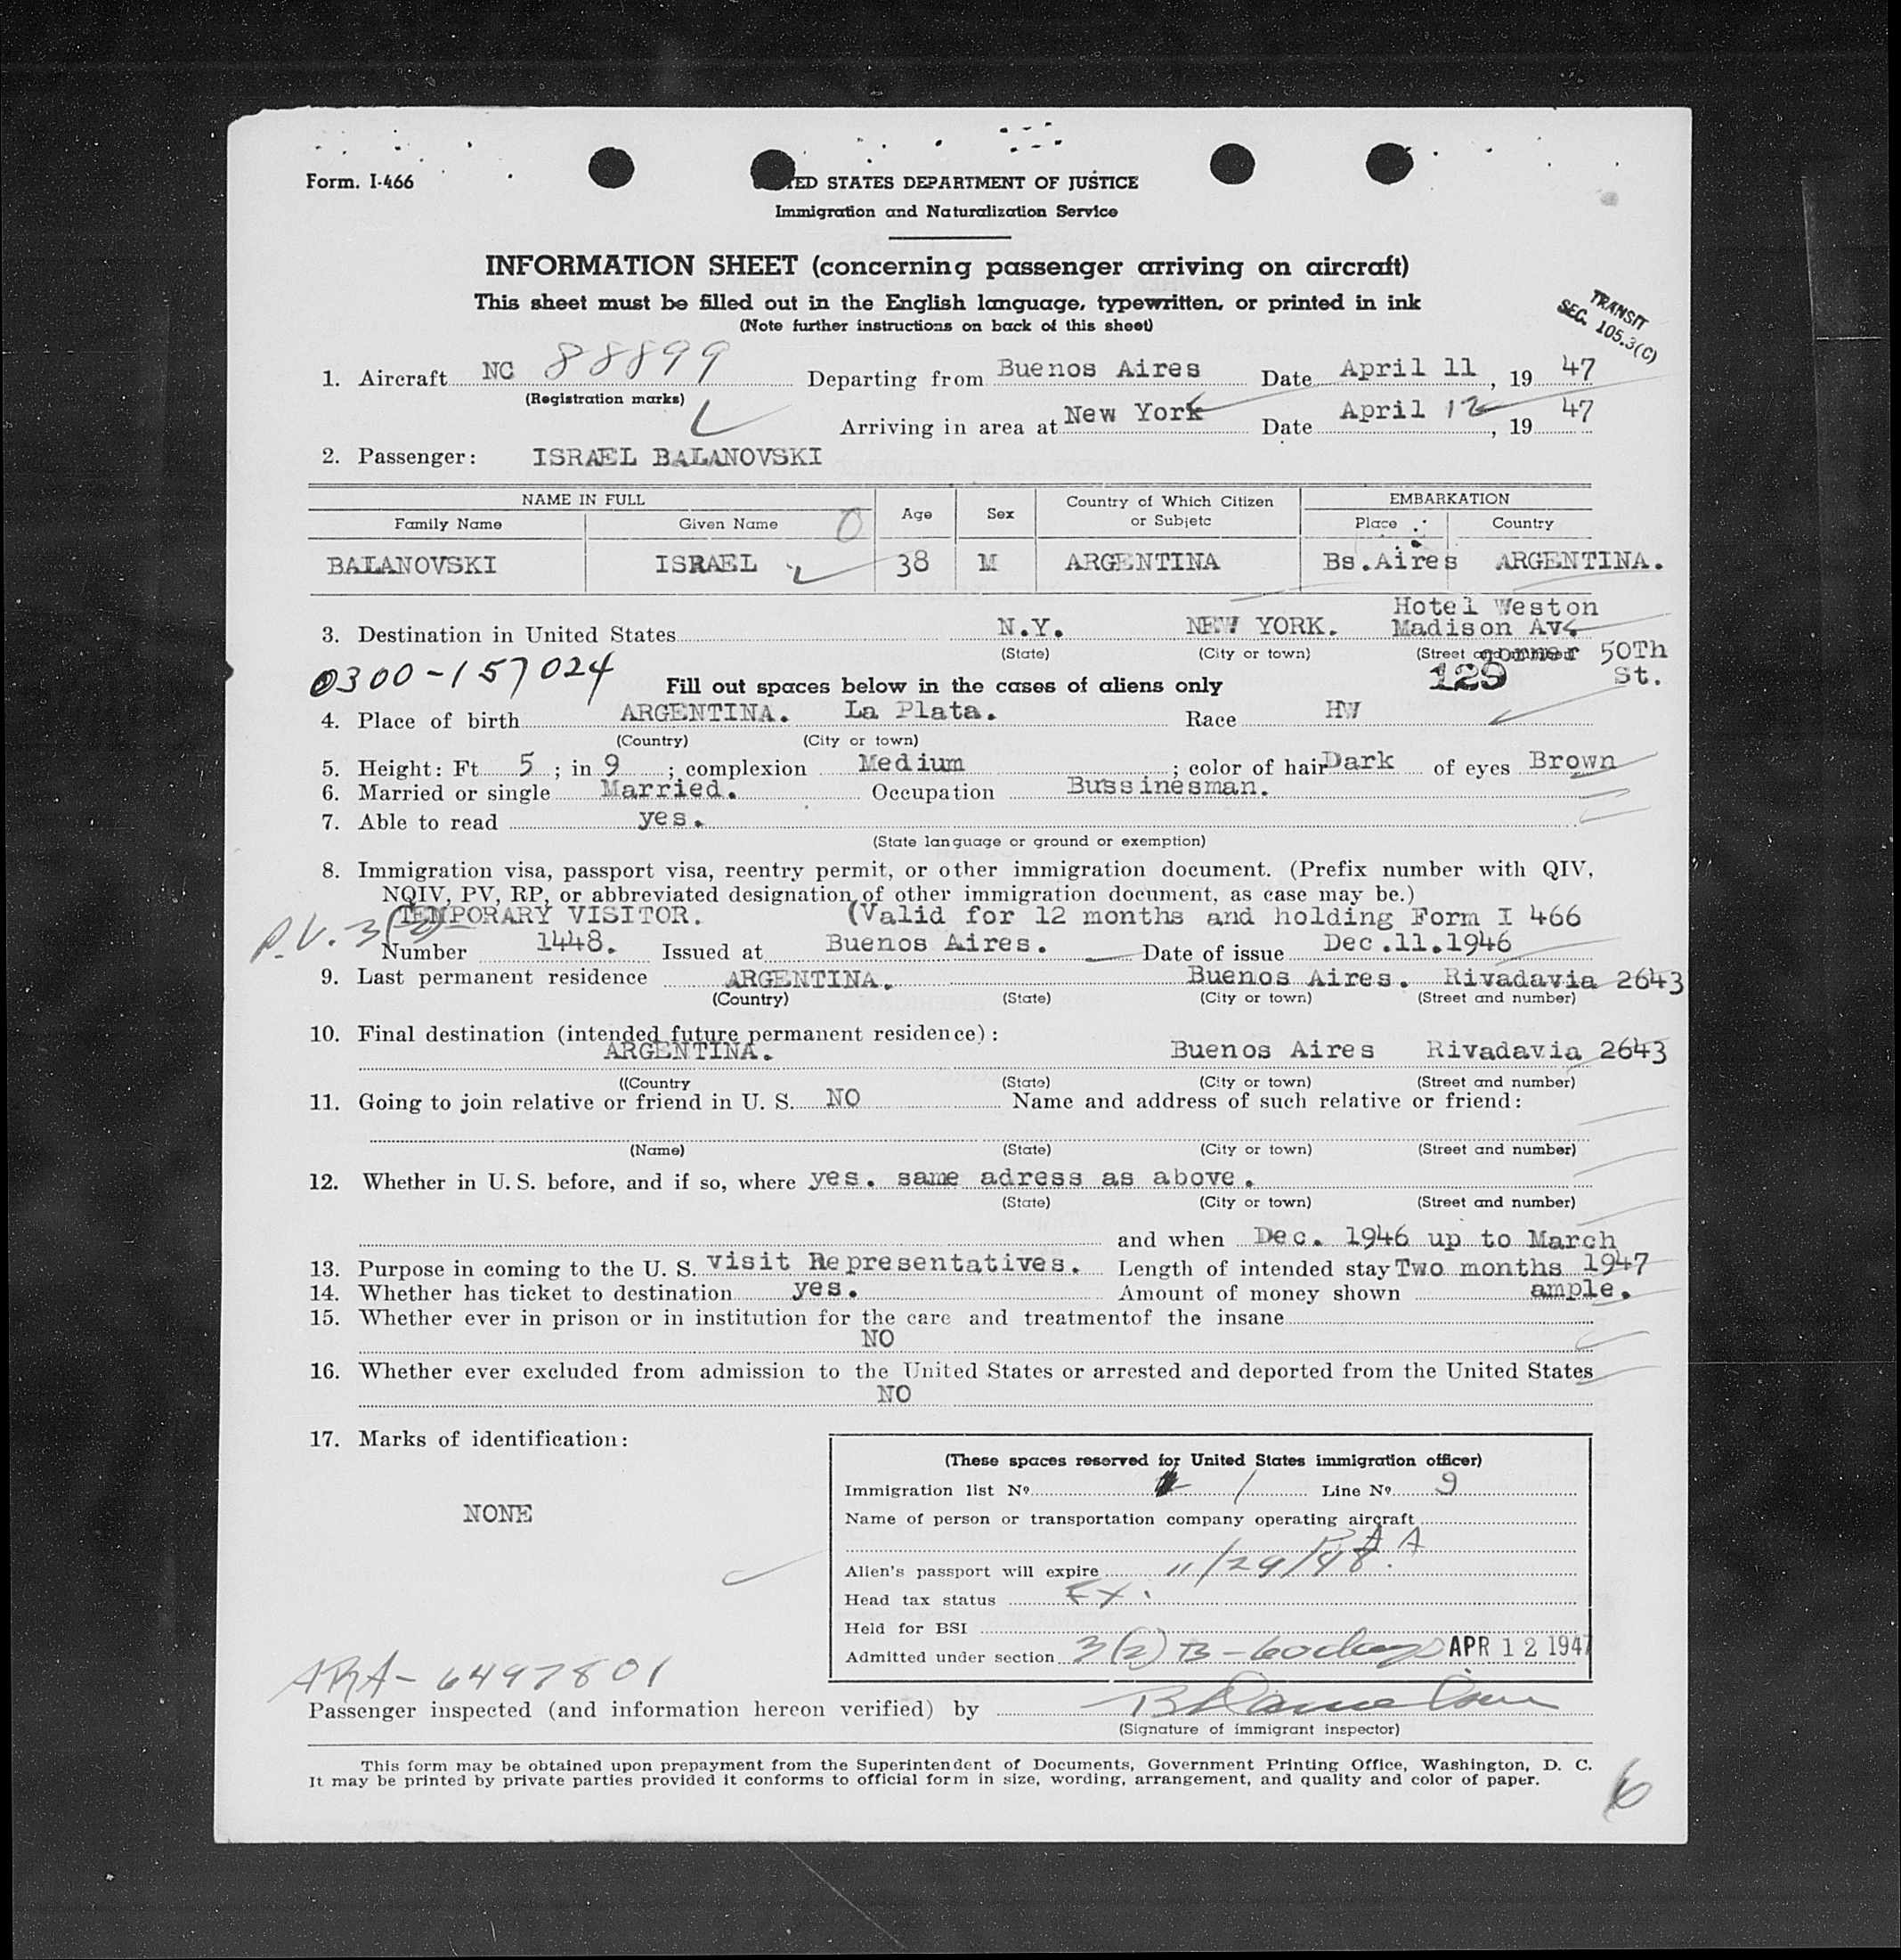 Form. I-466
TED STATES DEPARTMENT OF JUSTICE
Immigration and Naturalization Service
INFORMATION SHEET (concerning passenger arriving on aircraft)
This sheet must be filled out in the English language, typewritten, or printed in ink
(Note further instructions on back of this sheet)
TRANSIT
SEC. 105.3(C)
1. Aircraft NC 88899 Departing from Buenos Aires Date April 11, 19 47
(Registration marks)
Arriving in area at New York Date April 12, 19 47
2. Passenger: ISRAEL BALANOVSKI
NAME IN FULL Age Sex Country of Which Citizen or Subjetc EMBARKATION
Family Name Given Name Place Country
BALANOVSKI ISRAEL 38 M ARGENTINA Bs.Aires ARGENTINA.
Hotel Weston
3. Destination in United States N.Y. NEW YORK. Madison Av.
(State) (City or town) (Street and number) corner 50Th
0300-157024 Fill out spaces below in the cases of aliens only 129 St.
4. Place of birth ARGENTINA. La Plata. Race HW
(Country) (City or town)
5. Height: Ft 5 ; in 9 ; complexion Medium ; color of hair Dark of eyes Brown
6. Married or single Married. Occupation Bussinesman.
7. Able to read yes.
(State language or ground or exemption)
8. Immigration visa, passport visa, reentry permit, or other immigration document. (Prefix number with QIV,
NQIV, PV, RP, or abbreviated designation of other immigration document, as case may be.)
P.V. 3(2) TEMPORARY VISITOR. (Valid for 12 months and holding Form I 466
Number 1448. Issued at Buenos Aires. Date of issue Dec.11.1946
9. Last permanent residence ARGENTINA. Buenos Aires. Rivadavia 2643
(Country) (State) (City or town) (Street and number)
10. Final destination (intended future permanent residence):
ARGENTINA. Buenos Aires Rivadavia 2643
((Country (State) (City or town) (Street and number)
11. Going to join relative or friend in U. S. NO Name and address of such relative or friend:
(Name) (State) (City or town) (Street and number)
12. Whether in U. S. before, and if so, where yes. same adress as above.
(State) (City or town) (Street and number)
and when Dec. 1946 up to March
13. Purpose in coming to the U. S. visit Representatives. Length of intended stay Two months 1947
14. Whether has ticket to destination yes. Amount of money shown ample.
15. Whether ever in prison or in institution for the care and treatmentof the insane
NO
16. Whether ever excluded from admission to the United States or arrested and deported from the United States
NO
17. Marks of identification:
NONE
(These spaces reserved for United States immigration officer)
Immigration list Nº 1 Line Nº 9
Name of person or transportation company operating aircraft
PAA
Alien's passport will expire 11/29/48.
Head tax status Ex.
Held for BSI
Admitted under section 3(2) B - 60 days APR 12 1947
ARA-6497801
Passenger inspected (and information hereon verified) by
(Signature of immigrant inspector)
This form may be obtained upon prepayment from the Superintendent of Documents, Government Printing Office, Washington, D. C.
It may be printed by private parties provided it conforms to official form in size, wording, arrangement, and quality and color of paper.
6